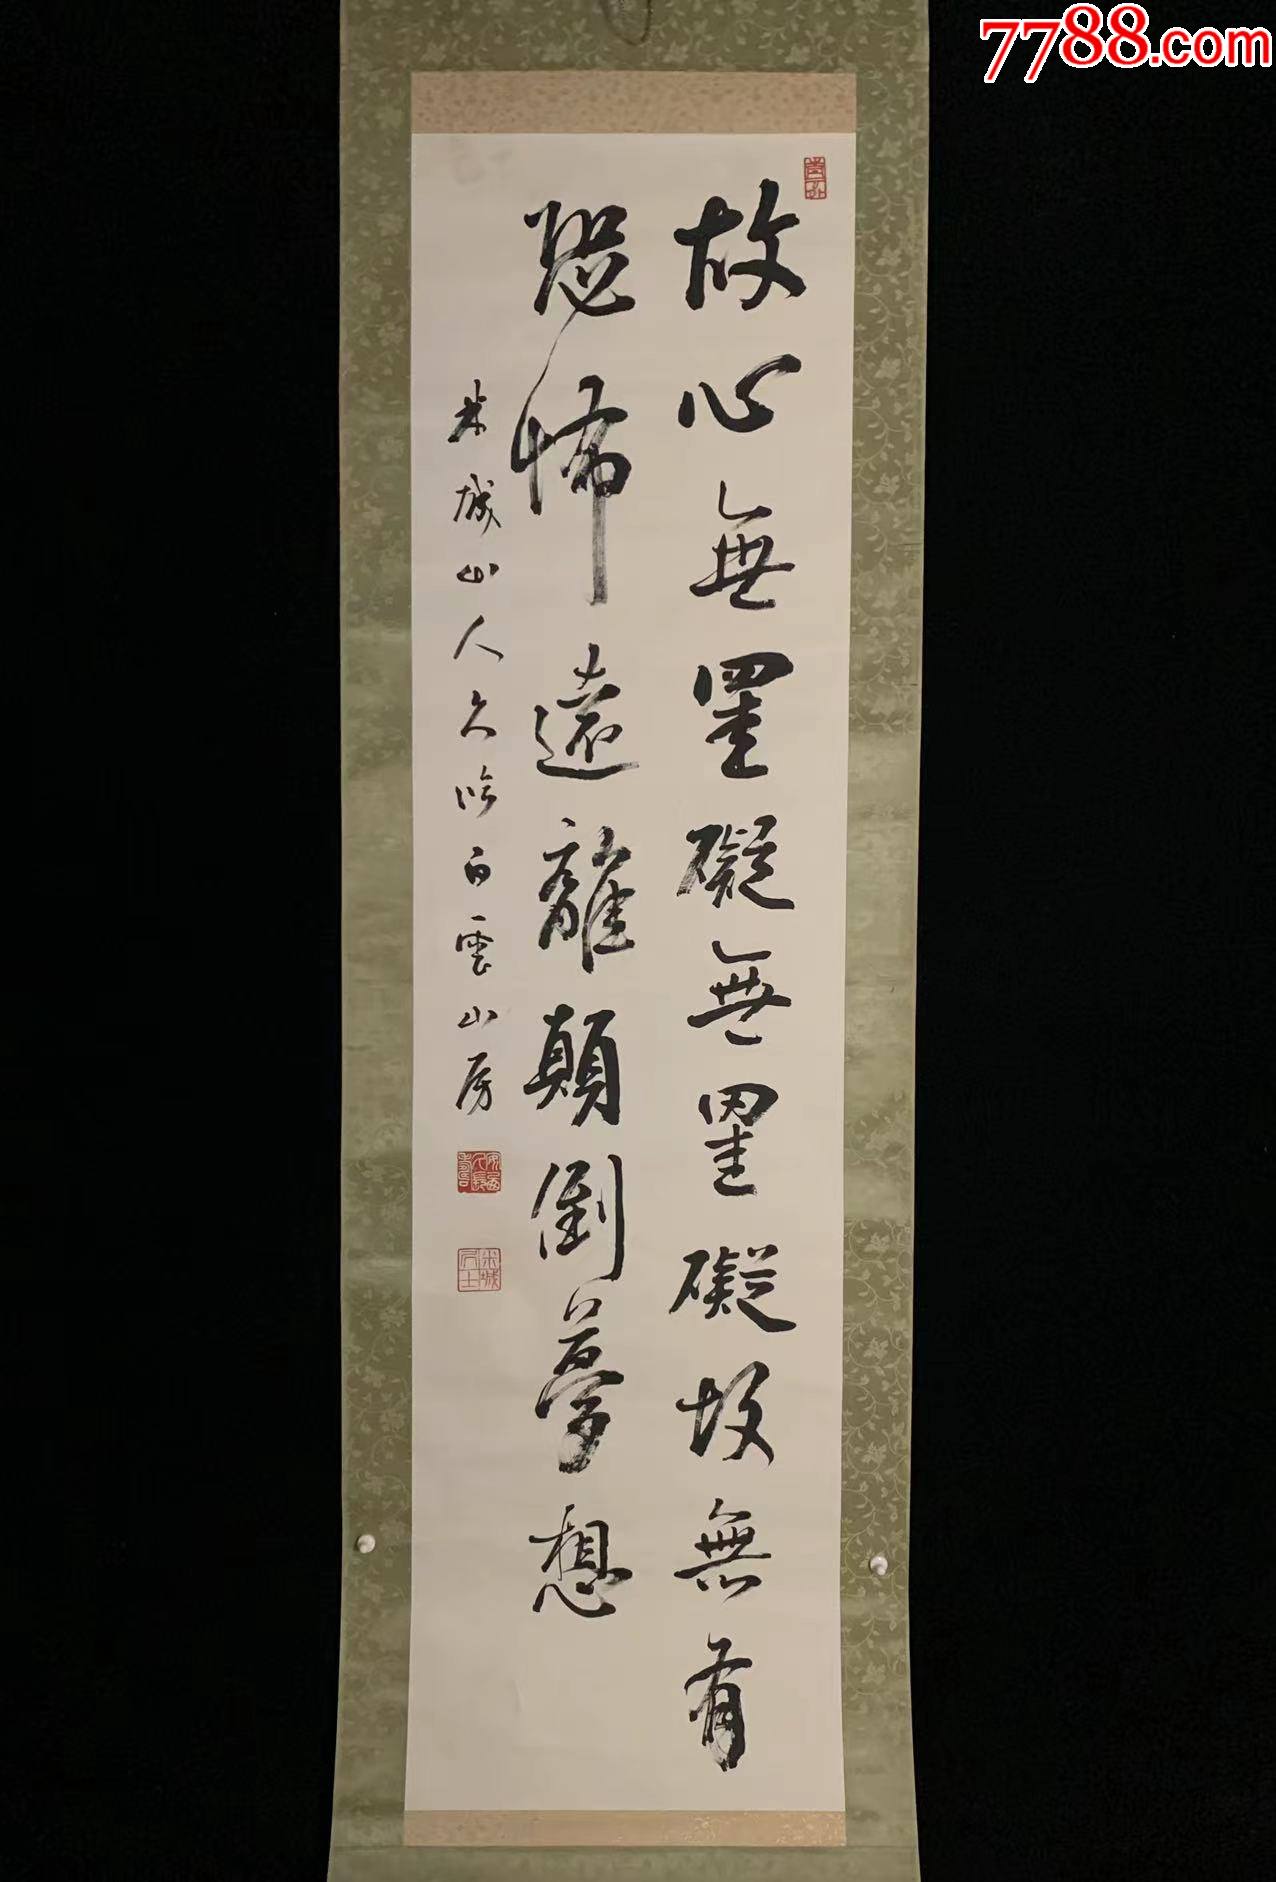 7788.com
故心無罣礙無罣礙故無有
恐怖遠離顛倒夢想
米城山人久於白雲山房
米城居士